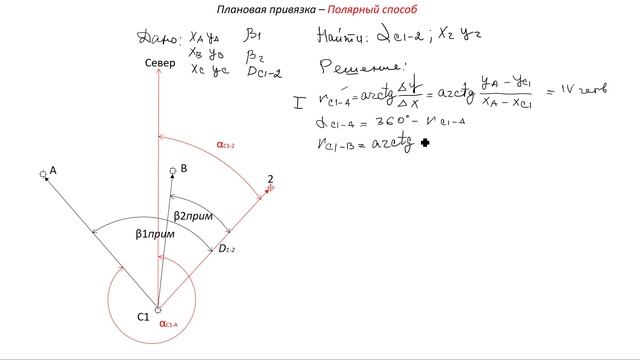 Плановая привязка – Полярный способ
Дано: XA YA β1
XB YB β2
XC YC DC1-2
Найти: αC1-2 ; X2 Y2
Решение:
I rC1-A = arctg ΔY/ΔX = arctg (YA – YC1)/(XA – XC1) = IV четв
αC1-A = 360° – rC1-A
rC1-B = arctg
Север
αC1-2
A
B
2
β2прим
β1прим
D1-2
C1
αC1-A